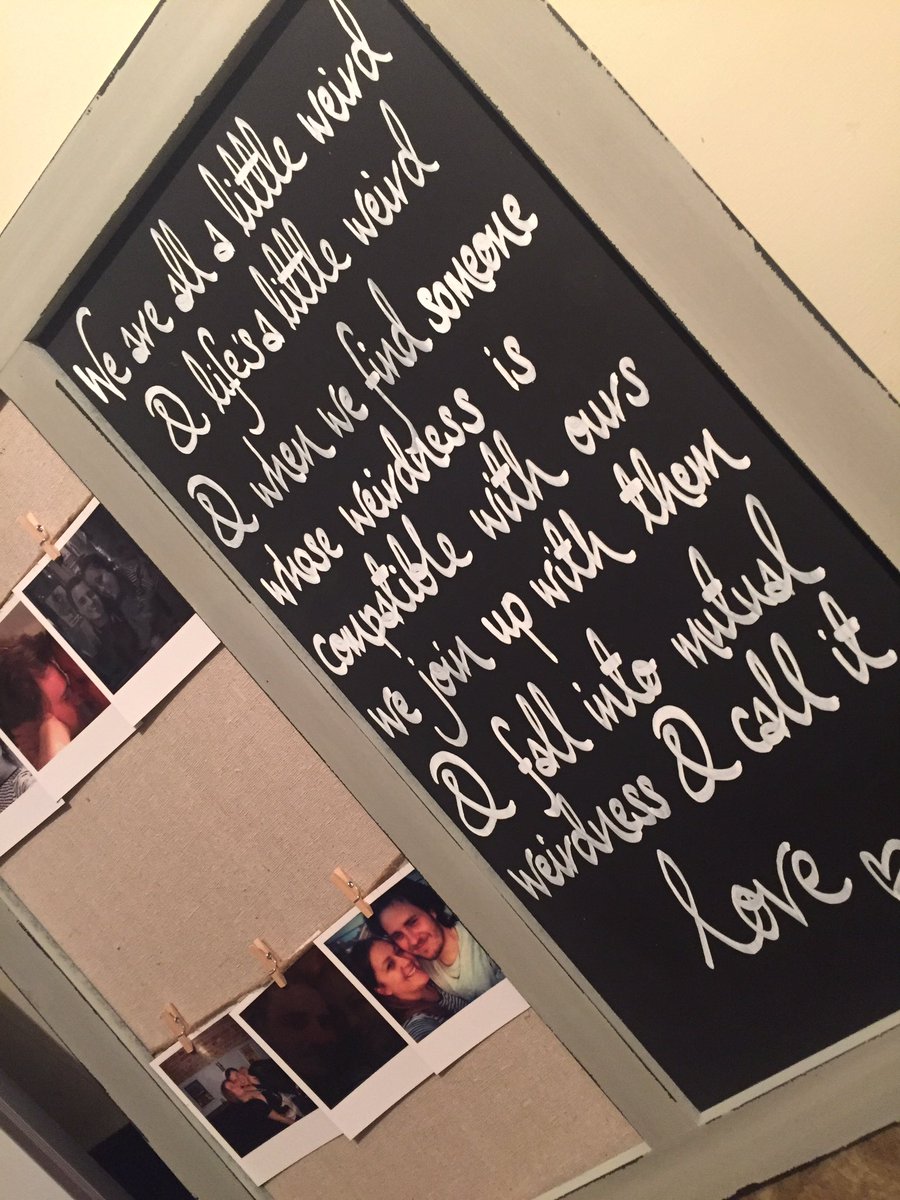 We are all a little weird
& life's a little weird
& when we find someone
whose weirdness is
compatible with ours
we join up with them
& fall into mutual
weirdness & call it
love